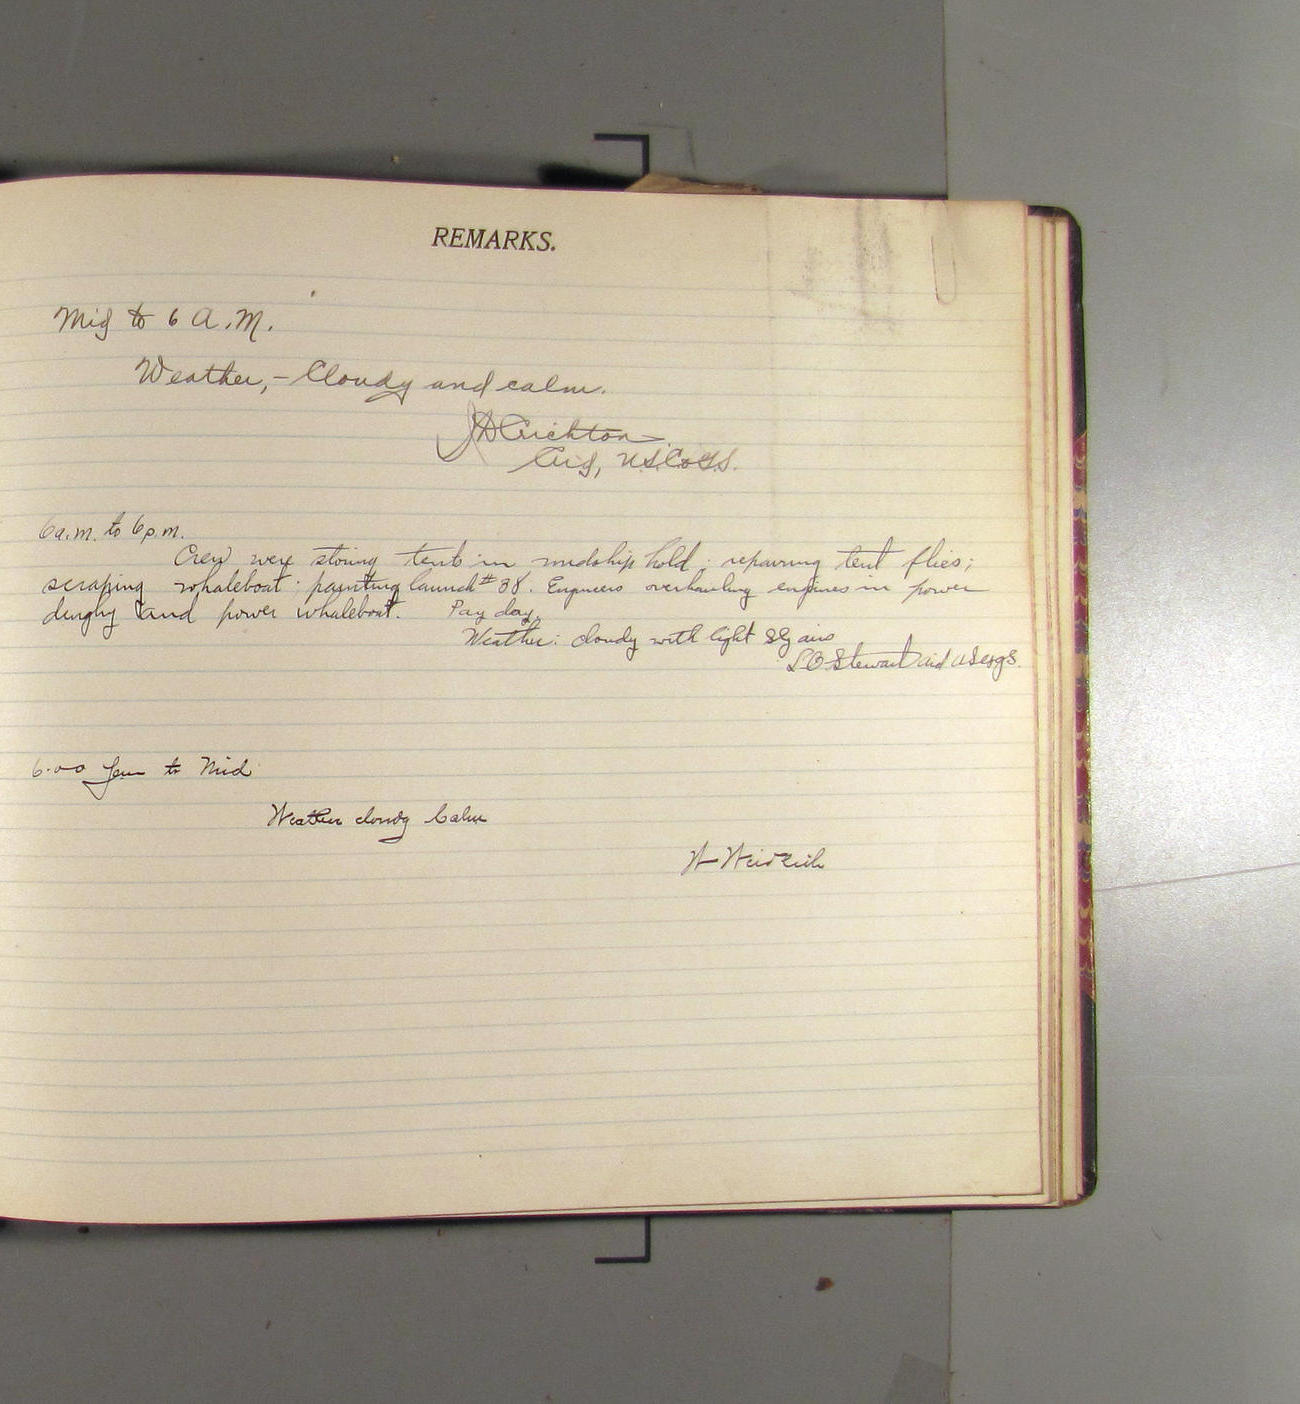 REMARKS.
Mid to 6 A.M.
Weather,- Cloudy and calm.
JA Crichton
Aid, U.S.C.&G.S.
6a.m. to 6p.m.
Crew were storing tents in midship hold; repairing tent flies;
scraping whaleboat; painting launch #38. Engineers overhauling engines in power
dinghy and power whaleboat. Pay day
Weather: cloudy with light SEly airs
LO Stewart aid USC&GS.
6.00 pm to Mid
Weather cloudy Calm